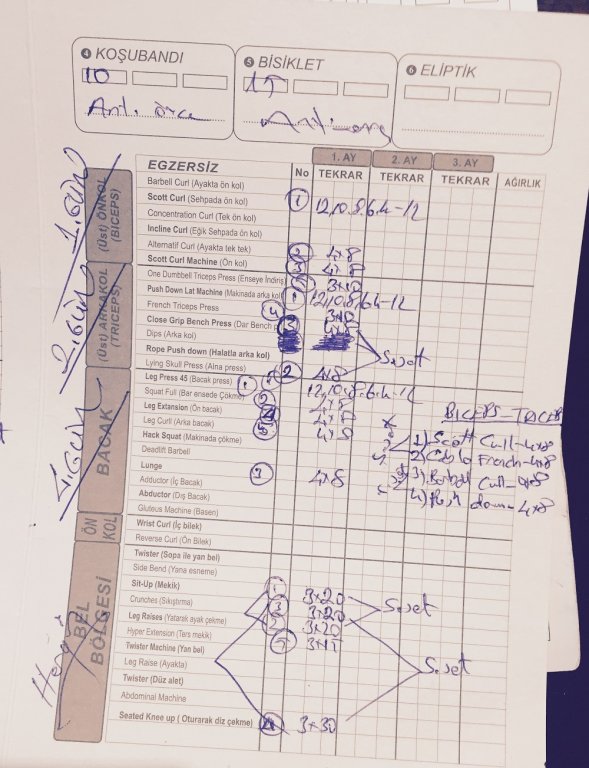 4 KOŞUBANDI
10
5 BİSİKLET
15
6 ELİPTİK
EGZERSİZ No 1. AY TEKRAR 2. AY TEKRAR 3. AY TEKRAR AĞIRLIK
(Üst) ÖNKOL (BICEPS)
Barbell Curl (Ayakta ön kol)
Scott Curl (Sehpada ön kol) 1 12,10,8,6,4-12
Concentration Curl (Tek ön kol)
Incline Curl (Eğik Sehpada ön kol)
Alternatif Curl (Ayakta tek tek) 2 4x8
Scott Curl Machine (Ön kol) 3 4x8
2.Gün
(Üst) ARKAKOL (TRICEPS)
One Dumbbell Triceps Press (Enseye İndiriş) 3x10
Push Down Lat Machine (Makinada arka kol) 1 12,10,8,6,4-12
French Triceps Press 4 3x10
Close Grip Bench Press (Dar Bench p 3 4x8
Dips (Arka kol)
Rope Push down (Halatla arka kol)
Lying Skull Press (Alna press) 2 4x8
S.set
BACAK
Leg Press 45 (Bacak press) 1 12,10,8,6,4-12
Squat Full (Bar ensede Çökme) 2 4x8
Leg Extansion (Ön bacak) 4 4x8
Leg Curl (Arka bacak) 5 4x8
Hack Squat (Makinada çökme)
Deadlift Barbell
Lunge 3 4x8
Adductor (İç Bacak)
Abductor (Dış Bacak)
Gluteus Machine (Basen)
BICEPS-TRICEPS
1) Scott Curl-4x8
2) Cable French-4x8
3) Barbell Curl-4x8
4) Push down-4x8
ÖN KOL
Wrist Curl (İç bilek)
Reverse Curl (Ön Bilek)
BEL BÖLGESİ
Twister (Sopa ile yan bel)
Side Bend (Yana esneme)
Sit-Up (Mekik) 1 3x20
Crunches (Sıkıştırma) 3 3x20
Leg Raises (Yatarak ayak çekme) 2 3x20
Hyper Extension (Ters mekik) 5 3x15
Twister Machine (Yan bel)
Leg Raise (Ayakta)
Twister (Düz alet)
Abdominal Machine
Seated Knee up ( Oturarak diz çekme) 4 3x30
S.set
S.set